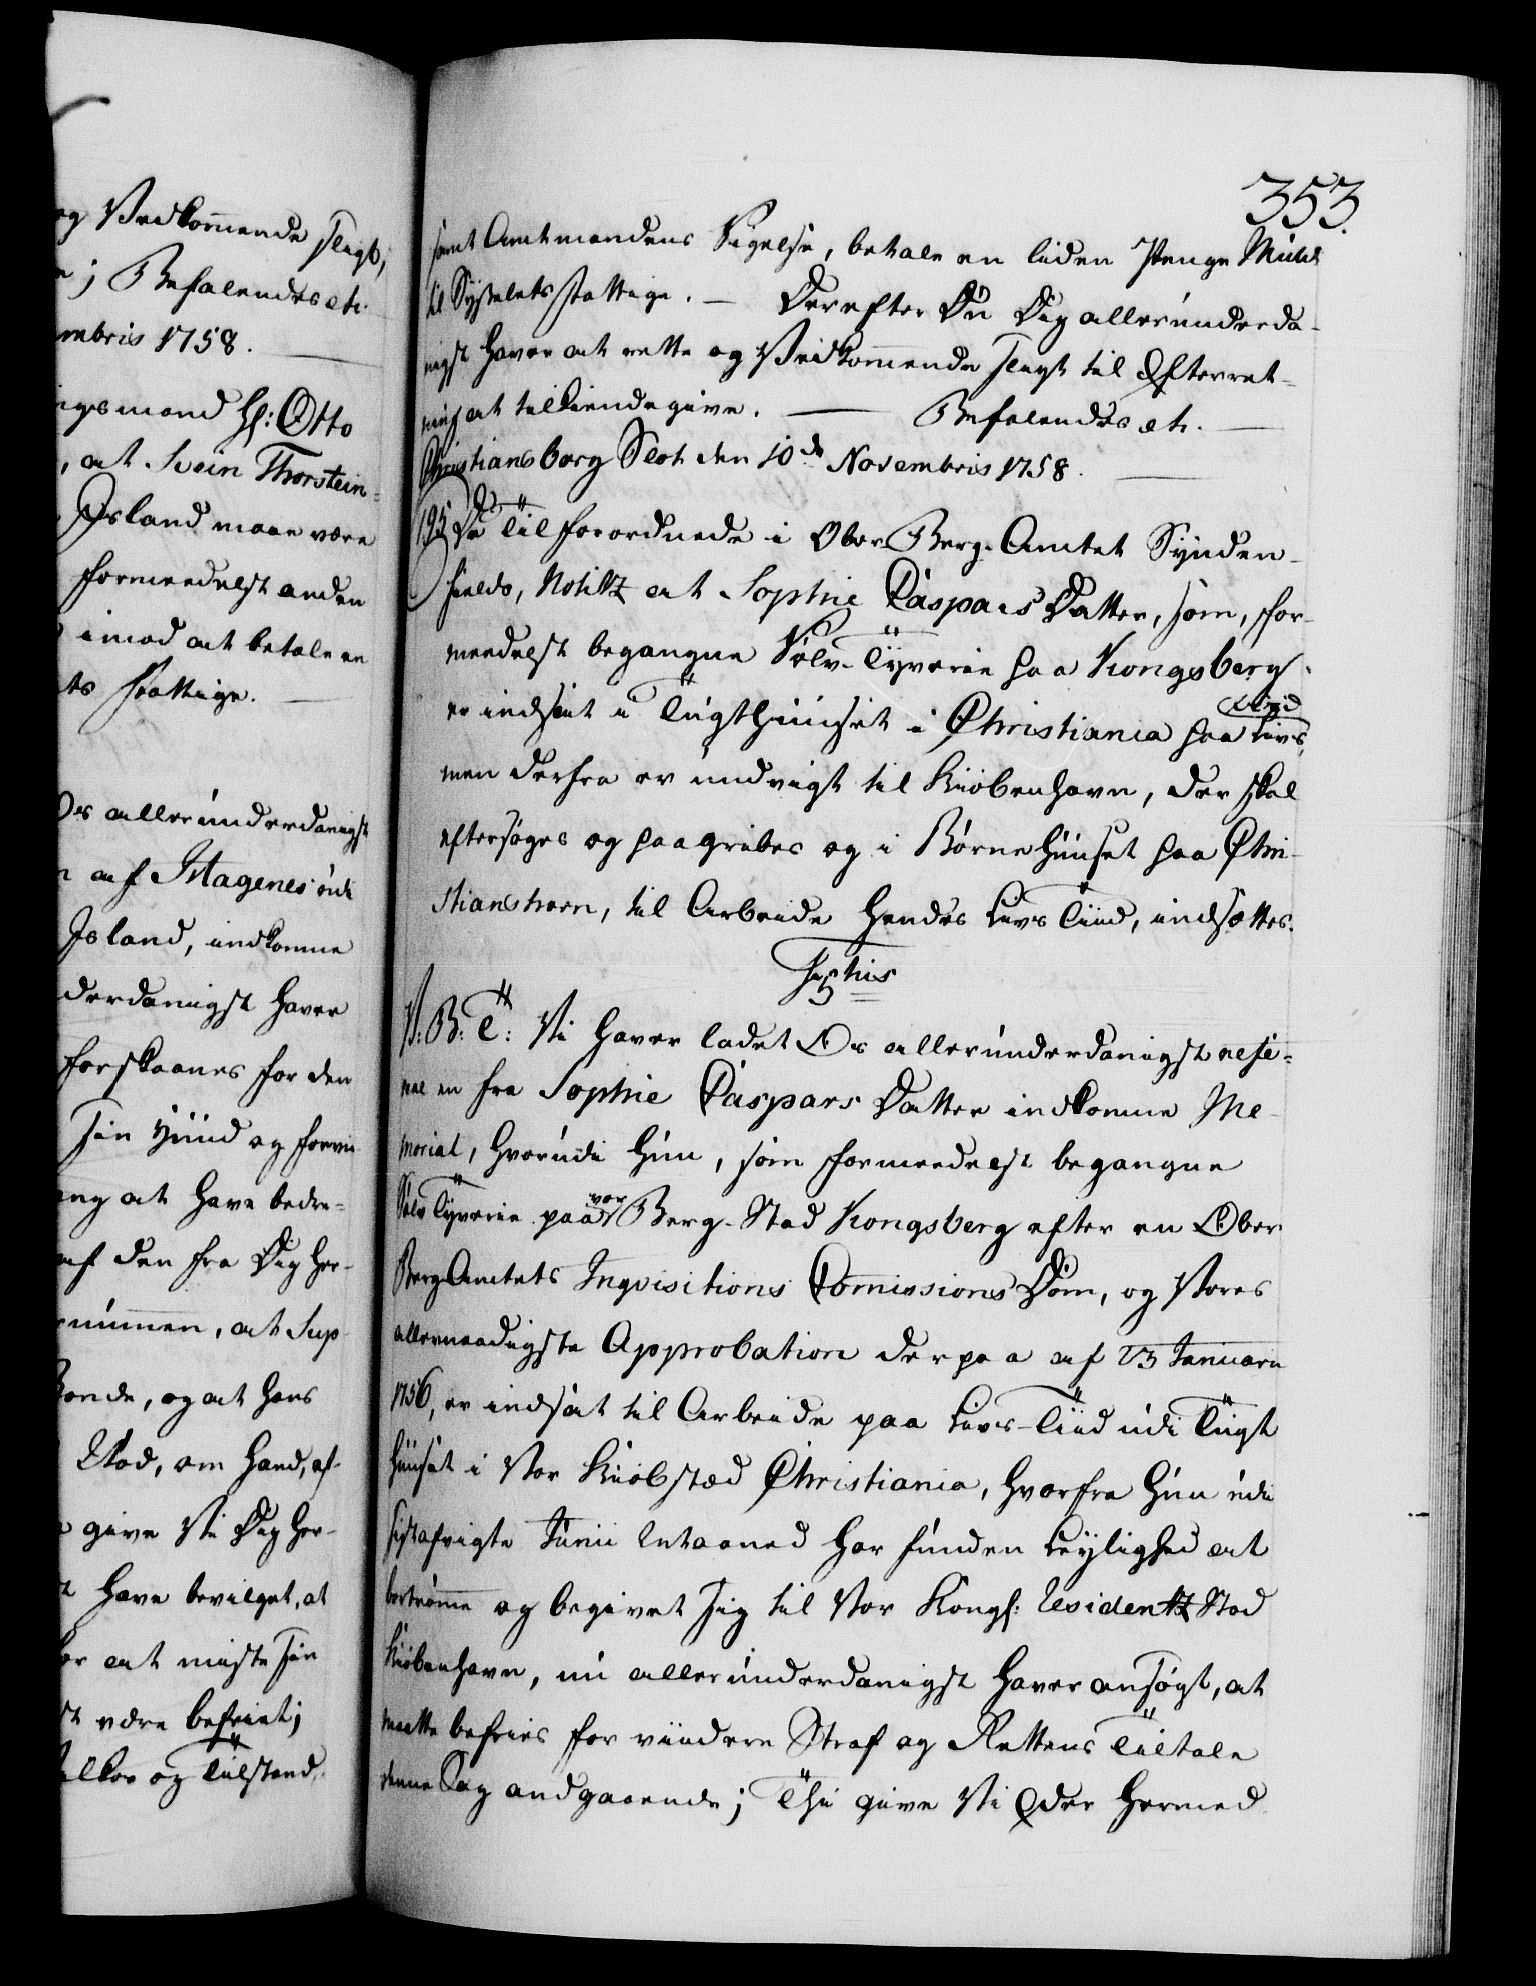 og Vedkommende sligt,
e; Befalendes etc.
mbris 1758.
igsmand Hr: Otto
, at Svein Thorstein=
Island maae være
formedelst anden
imod at betale en
ts Fattige.
Os allerunderdanigst
n af Magenes udi
Island, indkomne
derdanigst haver
forskaanes for den
sin
eng at have bedre=
af den fra Dig her-
rummen, at Sup-
onde, og at hans
Stod, om hand, af-
e give Vi Dig her-
t have bevilget, at
for at miste sin
st være befriet;
ilkor og Tilstand,
353.
samt Amtmandens Sigelse, betale en liden Penge Mulct
til Sysselets fattige. — Derefter Du Dig allerunderda-
nigst haver at rette og Vedkommende sligt til Efterret-
ning at tilkiendegive. — Befalendes etc. —
Christiansborg Slot den 10de Novembris 1758.
195 De Tilforordnede i Ober-Berg-Amtet Synden-
fields, Notitz at Sophie Caspars Datter, som, for-
meedelst begangne Sølv-Tyverie paa Kongsberg
er indsat i Tugthuuset i Christiania paa Livs Tiid,
men derfra er undvigt til Kiøbenhavn, der skal
eftersøges og paagribes og i Børnehuuset paa Chri-
stianshavn, til Arbeide hendes Livs Tiid, indsættes.
F 5tus
V: B: T: Vi haver ladet Os allerunderdanigst refe-
rere en fra Sophie Caspars Datter indkomne Me-
morial, hvorudi hun, som formeedelst begangne
Sølv Tyverie paa vor Berg-Stad Kongsberg efter en Ober
Berg-Amtets Inqvisitions Comissions Dom, og Vores
allernaadigste Approbation derpaa af 23 Januarii
1756, er indsat til Arbeide paa Livs-Tiid udi Tugt
huuset i Vor Kiøbstæd Christiania, hvorfra hun udi
sistafvigte Junii Maaned har funden Leylighed at
bortrømme og begivet sig til Vor Kongl: Residentz Stad
Kiøbenhavn, nu allerunderdanigst haver ansøgt, at
maatte befries for viidere Straf og Rettens Tiltale
denne Sag andgaaende; Thi give Vi Eder hermed